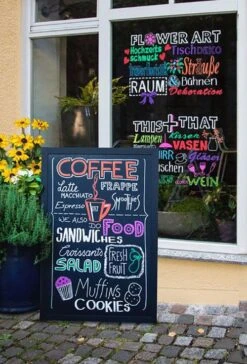 FLOWER ART
Hochzeits
schmuck
TischDEKO
Sträuße
RAUM
& Bühnen
Dekoration
THIS + THAT
Kissen
VASEN
Gläser
WEIN
COFFEE
Latte
MACCHIATO
FRAPPE
Espresso
Smoothies
WE ALSO DO FOOD
SANDWICHES
Croissants
SALAD
FRESH
FRUIT
Muffins
COOKIES